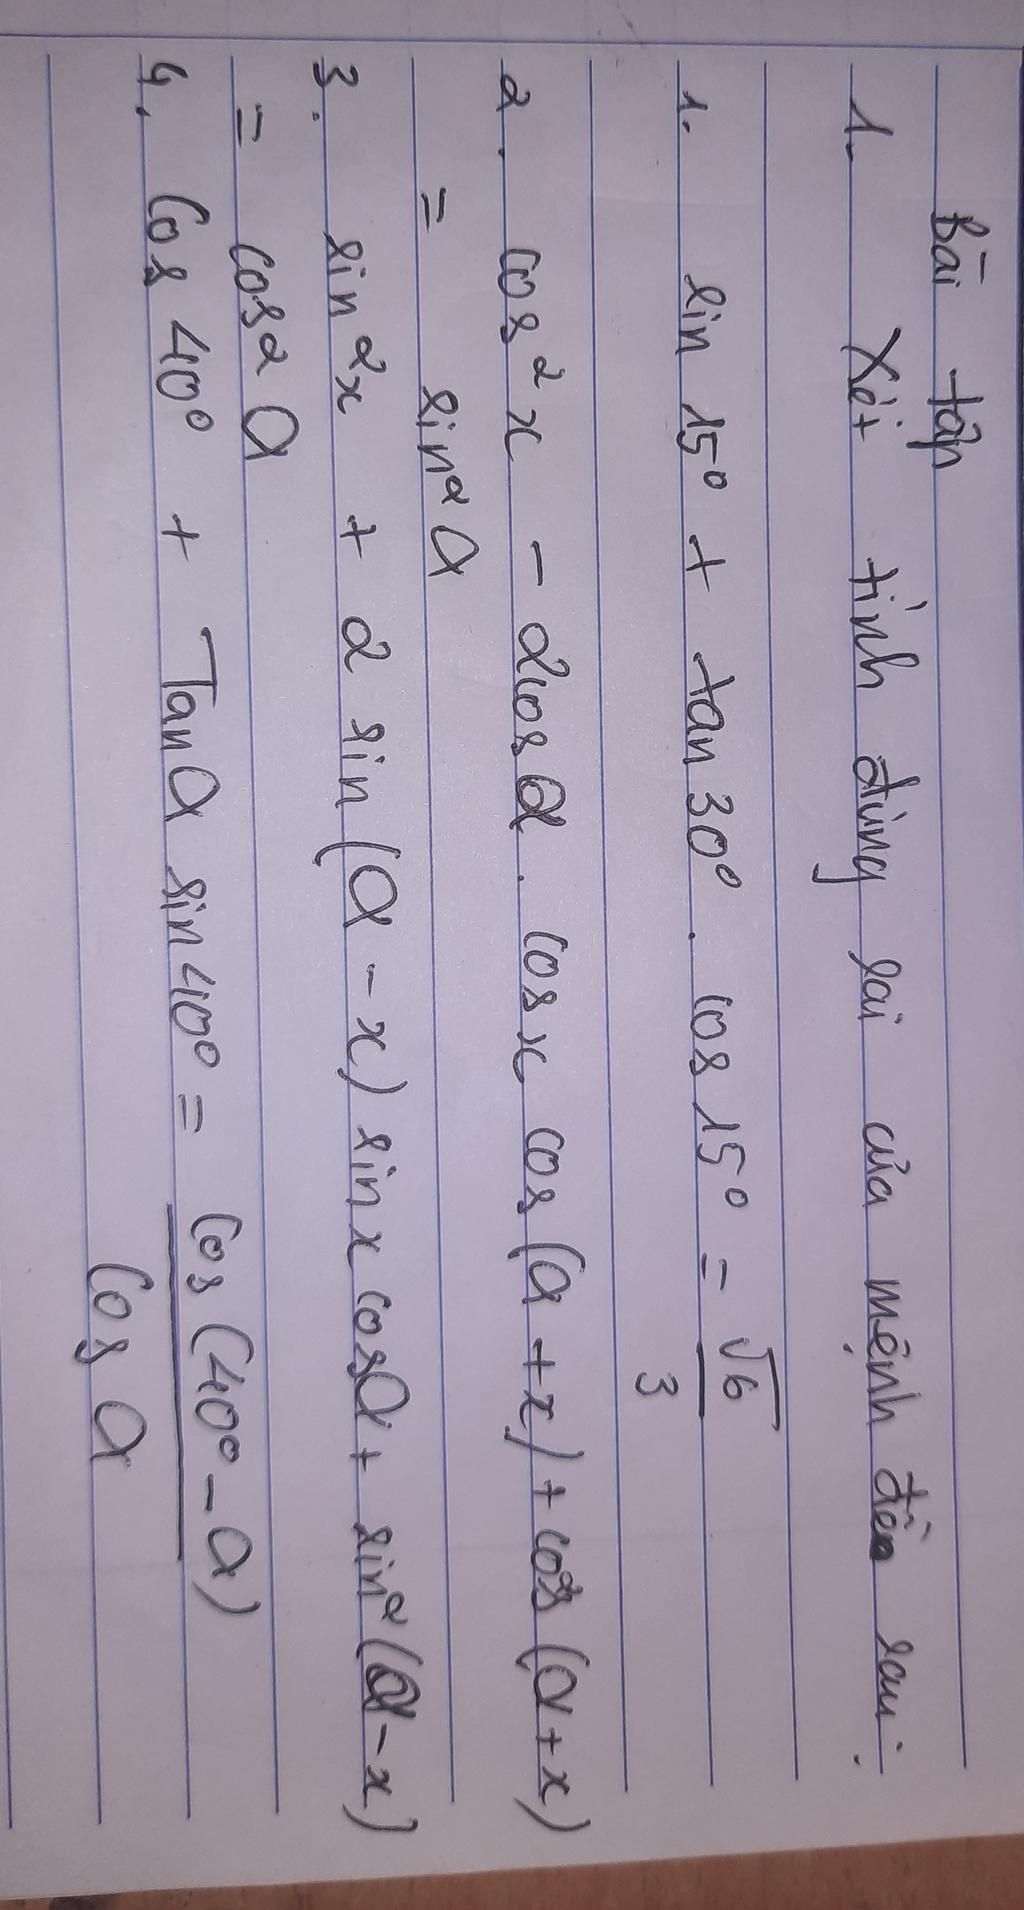 Bài tập
1. Xét tính đúng sai của mệnh đề sau:
1. sin 15° + tan 30° . cos 15° = √6/3
2. cos²x - 2cos α . cos x cos (α + x) + cos²(α + x)
= sin² α
3. sin²x + 2 sin (α - x) sin x cos α + sin² (α - x)
= cos² α
4. Cos 40° + Tan α sin 40° = Cos (40° - α)/Cos α